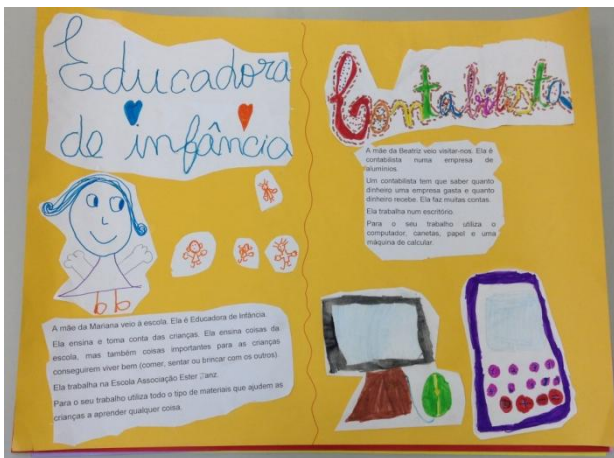 Educadora
de infância
A mãe da Mariana veio à escola. Ela é Educadora de Infância.
Ela ensina e toma conta das crianças. Ela ensina coisas da
escola, mas também coisas importantes para as crianças
conseguirem viver bem (comer, sentar ou brincar com os outros).
Ela trabalha na Escola Associação Ester
Para o seu trabalho utiliza todo o tipo de materiais que ajudem as
crianças a aprender qualquer coisa.
Contabilista
A mãe da Beatriz veio visitar-nos. Ela é
contabilista numa empresa de
alumínios.
Um contabilista tem que saber quanto
dinheiro uma empresa gasta e quanto
dinheiro recebe. Ela faz muitas contas.
Ela trabalha num escritório.
Para o seu trabalho utiliza o
computador, canetas, papel e uma
máquina de calcular.